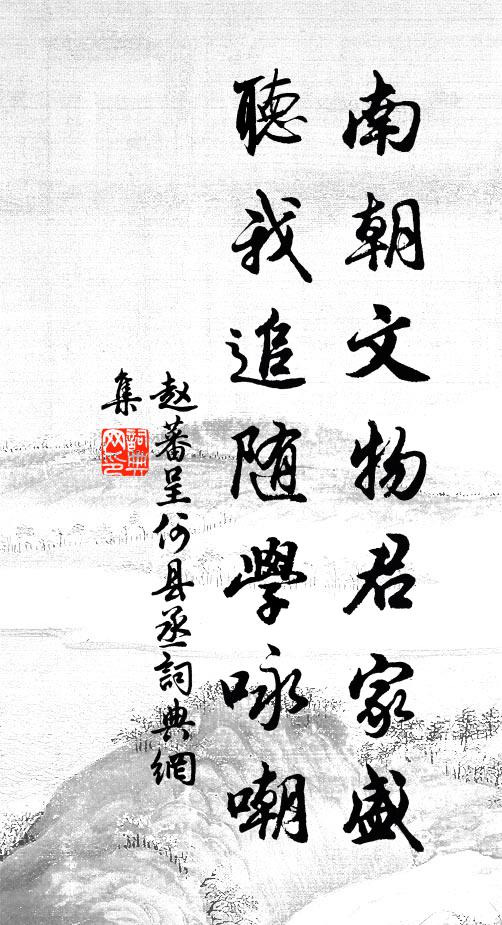 南朝文物君家盛
聽我追随學咏嘲
赵蕃呈何县丞詞典網
集
詞典网印